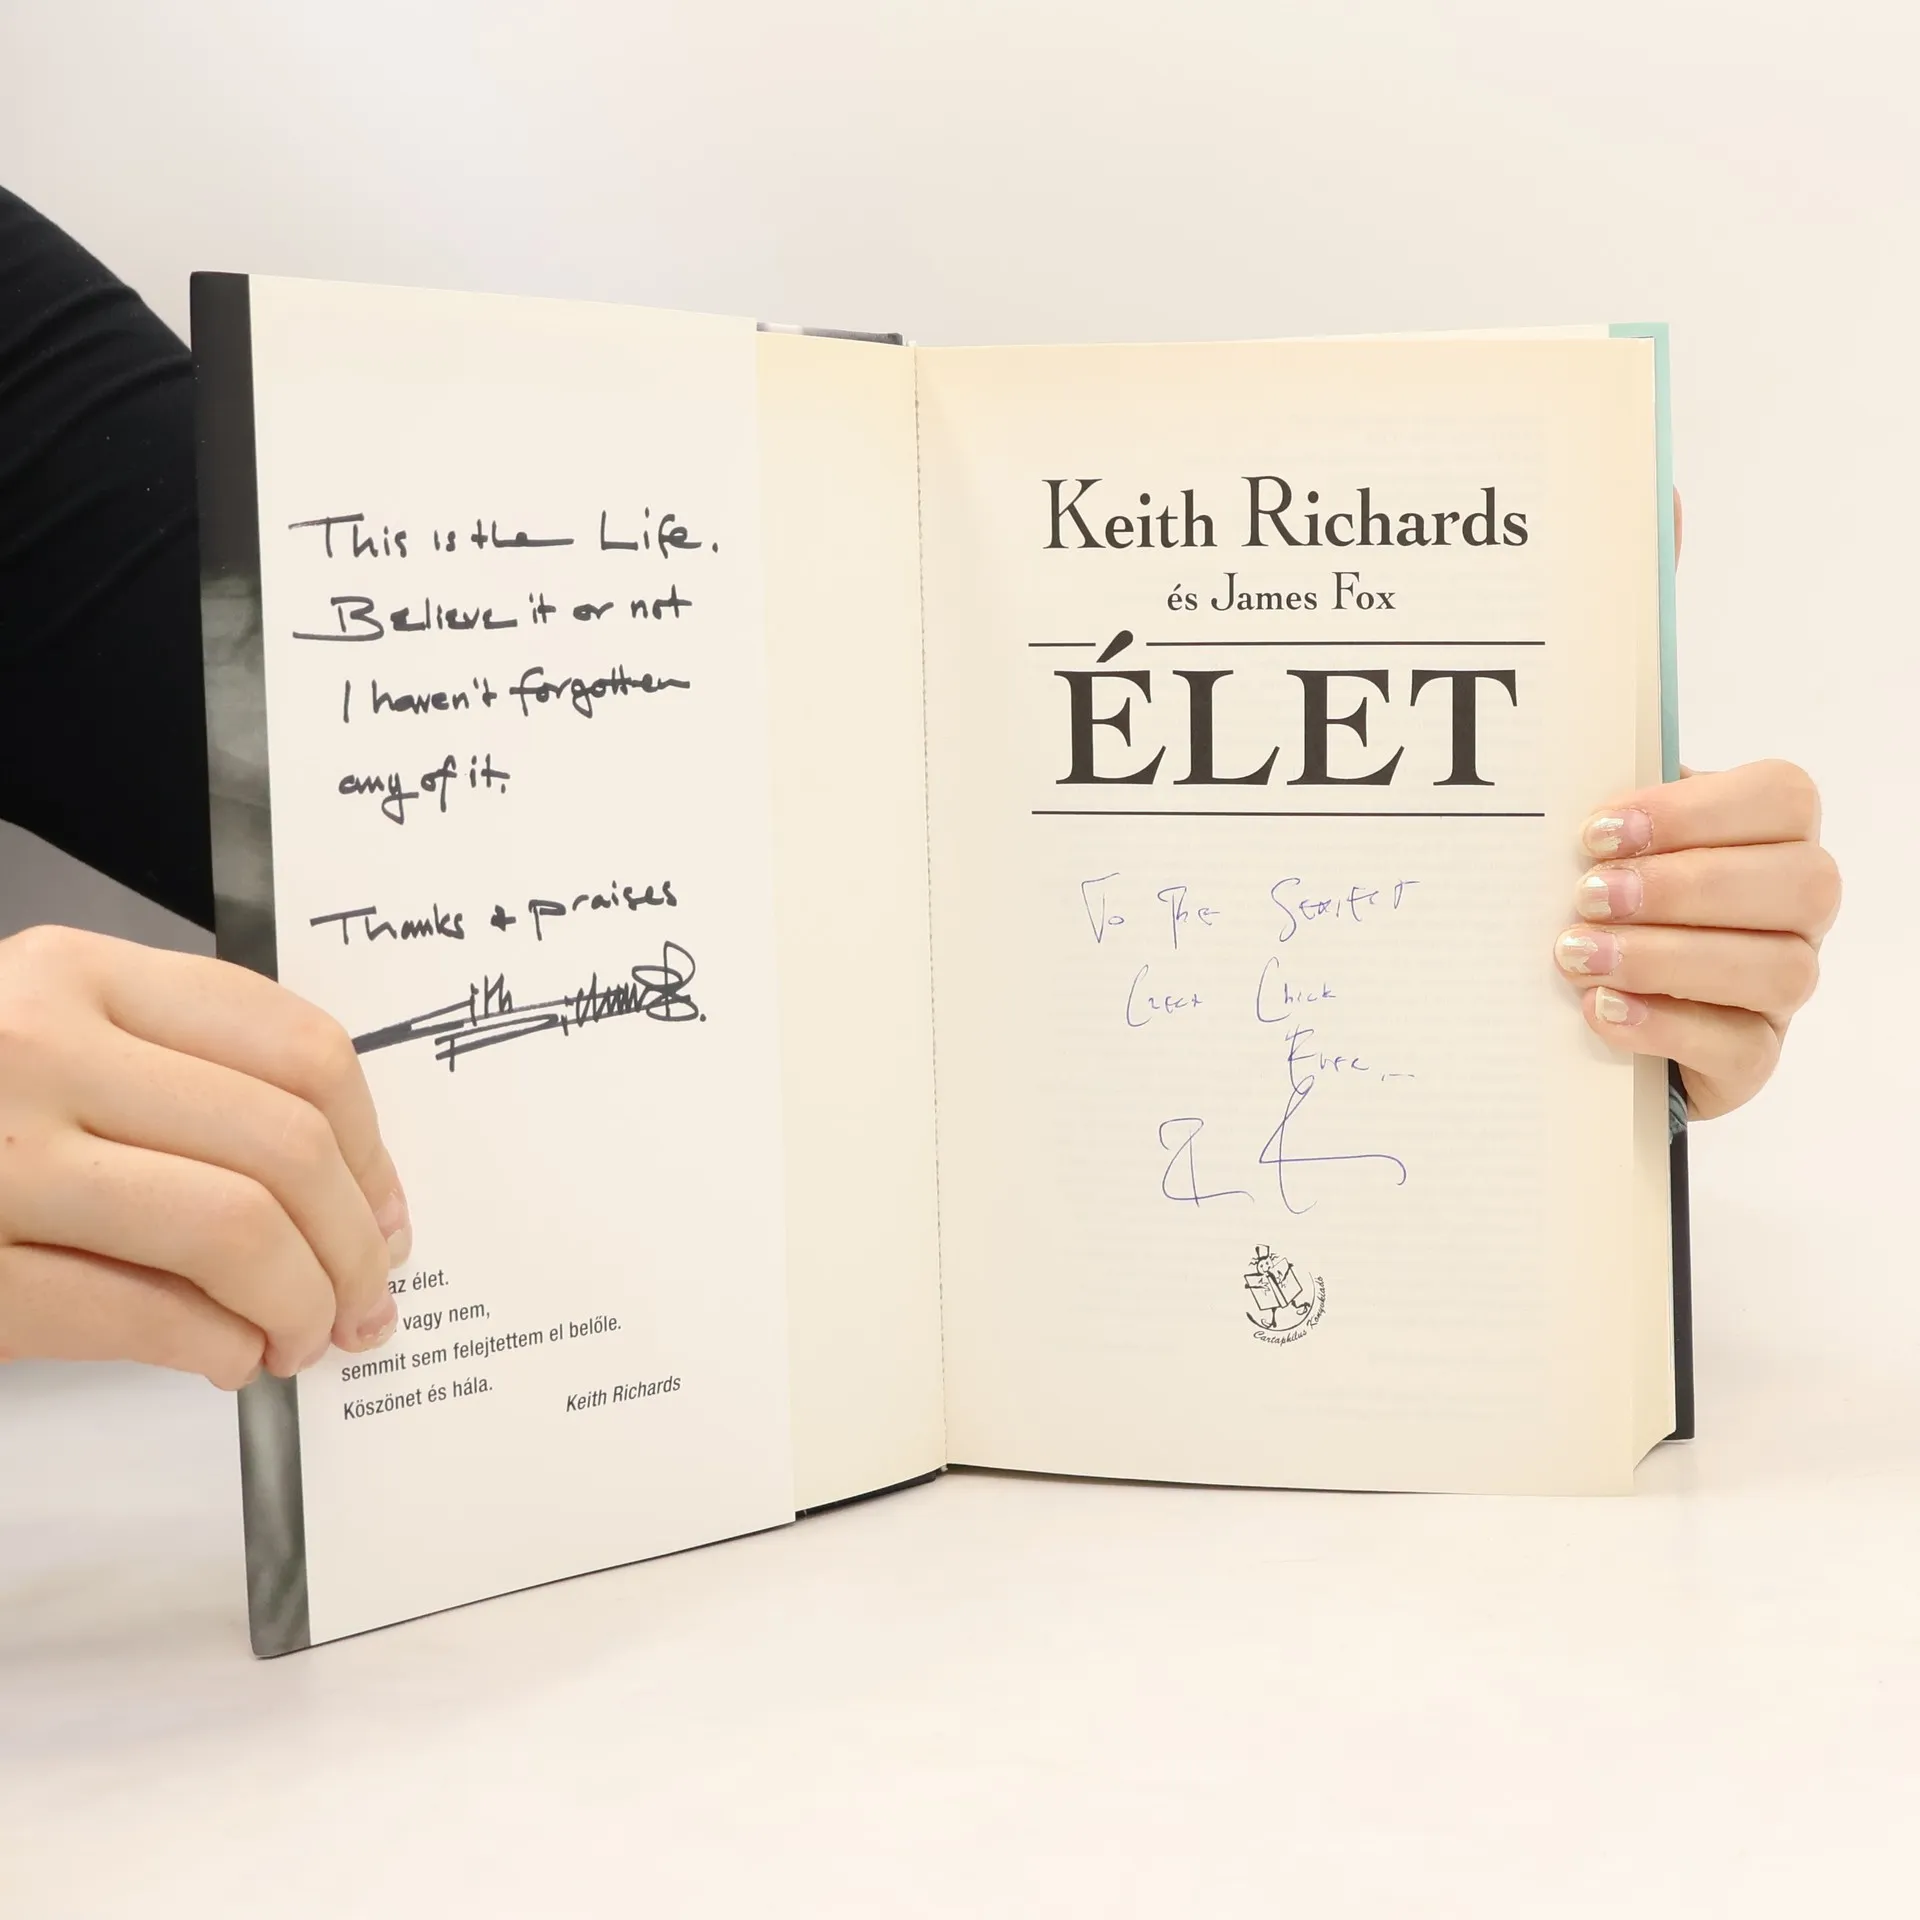 This is the Life.
Believe it or not
I haven't forgotten
any of it.
Thanks + praises
az élet.
vagy nem,
semmit sem felejtettem el belőle.
Köszönet és hála.
Keith Richards
Keith Richards
és James Fox
ÉLET
To The Sexiest
Czech Chick
Ever
Cartaphilus Könyvkiadó